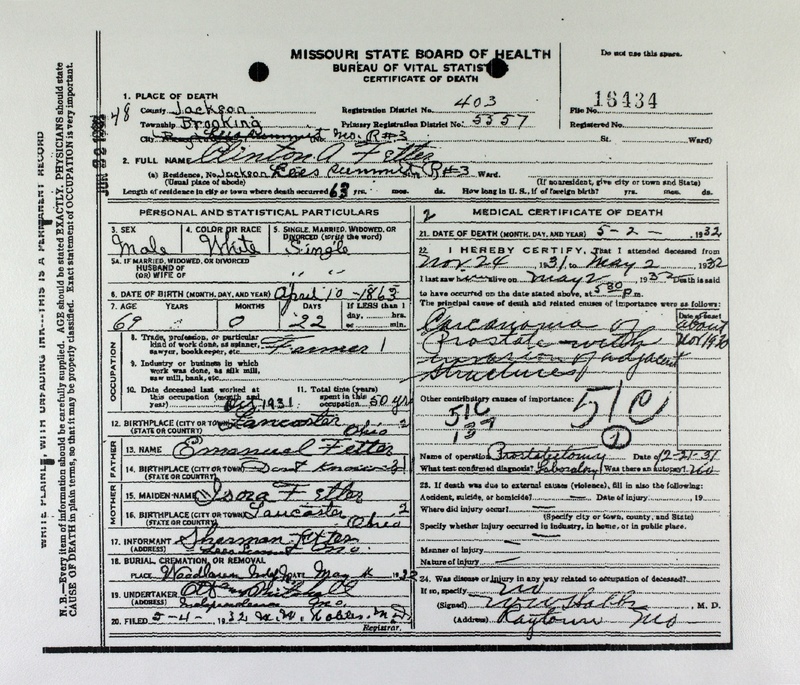 MISSOURI STATE BOARD OF HEALTH
BUREAU OF VITAL STATISTICS
CERTIFICATE OF DEATH
Do not use this space.
1. PLACE OF DEATH
48 County Jackson Registration District No. 403 File No. 16434
Township Brooking Primary Registration District No. 5557 Registered No.
City Lees Summit Mo. R#3 St. Ward)
2. FULL NAME Clinton A Fetter
(a) Residence, No. Jackson Lees Summit, R#3 Ward.
(Usual place of abode) (If nonresident, give city or town and State)
Length of residence in city or town where death occurred 63 yrs. mos. ds. How long in U. S., if of foreign birth? yrs. mos. ds.
PERSONAL AND STATISTICAL PARTICULARS
3. SEX 4. COLOR OR RACE 5. SINGLE, MARRIED, WIDOWED, OR DIVORCED (write the word)
Male White Single
5A. IF MARRIED, WIDOWED, OR DIVORCED
HUSBAND OF
(OR) WIFE OF " "
6. DATE OF BIRTH (MONTH, DAY, AND YEAR) April 10 - 1863
7. AGE YEARS MONTHS DAYS If LESS than 1
day, hrs.
or min.
69 0 22
OCCUPATION
8. Trade, profession, or particular kind of work done, as spinner, sawyer, bookkeeper, etc. Farmer 1
9. Industry or business in which work was done, as silk mill, saw mill, bank, etc.
10. Date deceased last worked at this occupation (month and year) 1931
11. Total time (years) spent in this occupation 50 yrs
12. BIRTHPLACE (CITY OR TOWN) Lancaster 2
(STATE OR COUNTRY) Ohio
FATHER
13. NAME Emanuel Fetter
14. BIRTHPLACE (CITY OR TOWN)
(STATE OR COUNTRY)
MOTHER
15. MAIDEN NAME Isora Fetter
16. BIRTHPLACE (CITY OR TOWN) Lancaster 2
(STATE OR COUNTRY) Ohio
17. INFORMANT Sherman Fetter
(ADDRESS) Lees Summit Mo.
18. BURIAL, CREMATION, OR REMOVAL
PLACE Woodlawn DATE May 4 1932
19. UNDERTAKER
(ADDRESS) Independence Mo.
20. FILED 5-4- 1932
Registrar.
2 MEDICAL CERTIFICATE OF DEATH
21. DATE OF DEATH (MONTH, DAY, AND YEAR) 5-2- 1932
22. I HEREBY CERTIFY, That I attended deceased from
Nov. 24 1931, to May 2 1932
I last saw h alive on May 2 1932 Death is said
to have occurred on the date stated above, at 5 30 P m.
The principal cause of death and related causes of importance were as follows:
Date of onset
Carcinoma of about
Prostate with Nov 1930
invasion of adjacent
structures
Other contributory causes of importance:
51C
510
1
Name of operation Prostatectomy Date of 12-21-31
What test confirmed diagnosis? Laboratory Was there an autopsy? No
23. If death was due to external causes (violence), fill in also the following:
Accident, suicide, or homicide? — Date of injury , 19
Where did injury occur? —
(Specify city or town, county, and State)
Specify whether injury occurred in industry, in home, or in public place.
Manner of injury —
Nature of injury —
24. Was disease or injury in any way related to occupation of deceased?
If so, specify No
(Signed) , M. D.
(Address) Raytown Mo
WRITE PLAINLY, WITH UNFADING INK—THIS IS A PERMANENT RECORD
N. B.—Every item of information should be carefully supplied. AGE should be stated EXACTLY. PHYSICIANS should state
CAUSE OF DEATH in plain terms, so that it may be properly classified. Exact statement of OCCUPATION is very important.